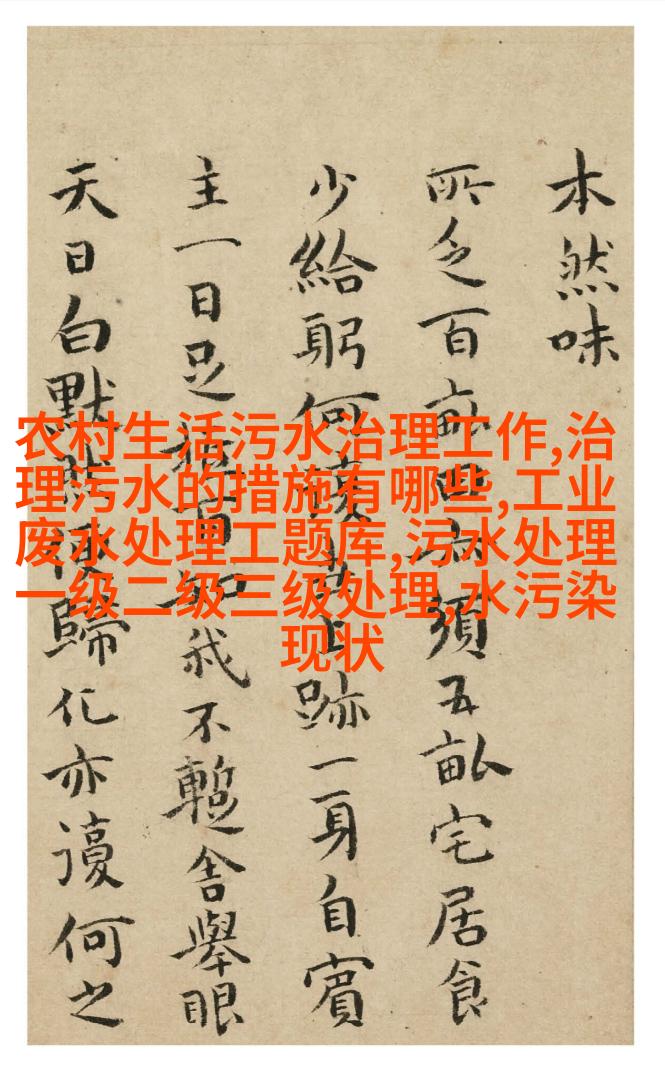 本然味
所乏百畝須五畝宅居食
少給躬何跡一身自賓
主一日足我不暫舍舉眼
天日白默歸化亦何之
农村生活污水治理工作,治
理污水的措施有哪些,工业
废水处理工题库,污水处理
一级二级三级处理,水污染
现状